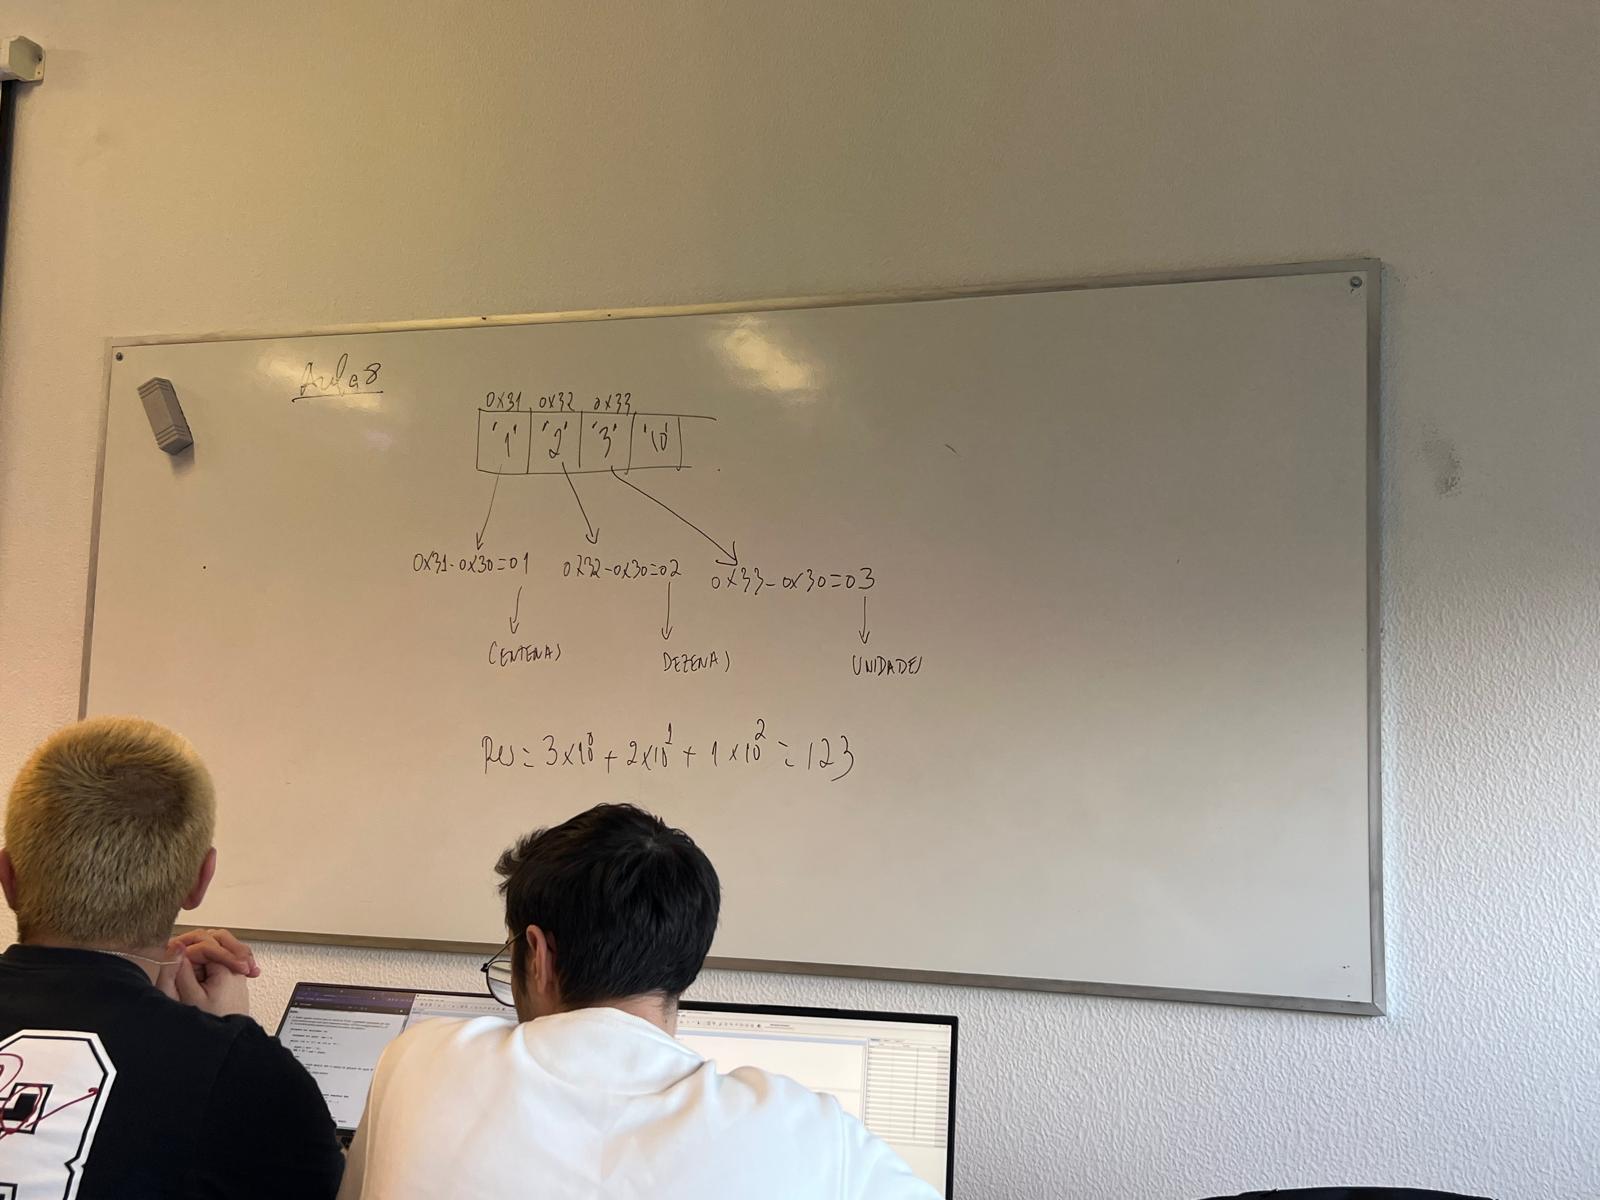 Aula 8
0x31 0x32 0x33
'1' '2' '3' '\0'
0x31-0x30=01 0x32-0x30=02 0x33-0x30=03
CENTENAS DEZENAS UNIDADES
Res = 3x10⁰ + 2x10¹ + 1x10² = 123